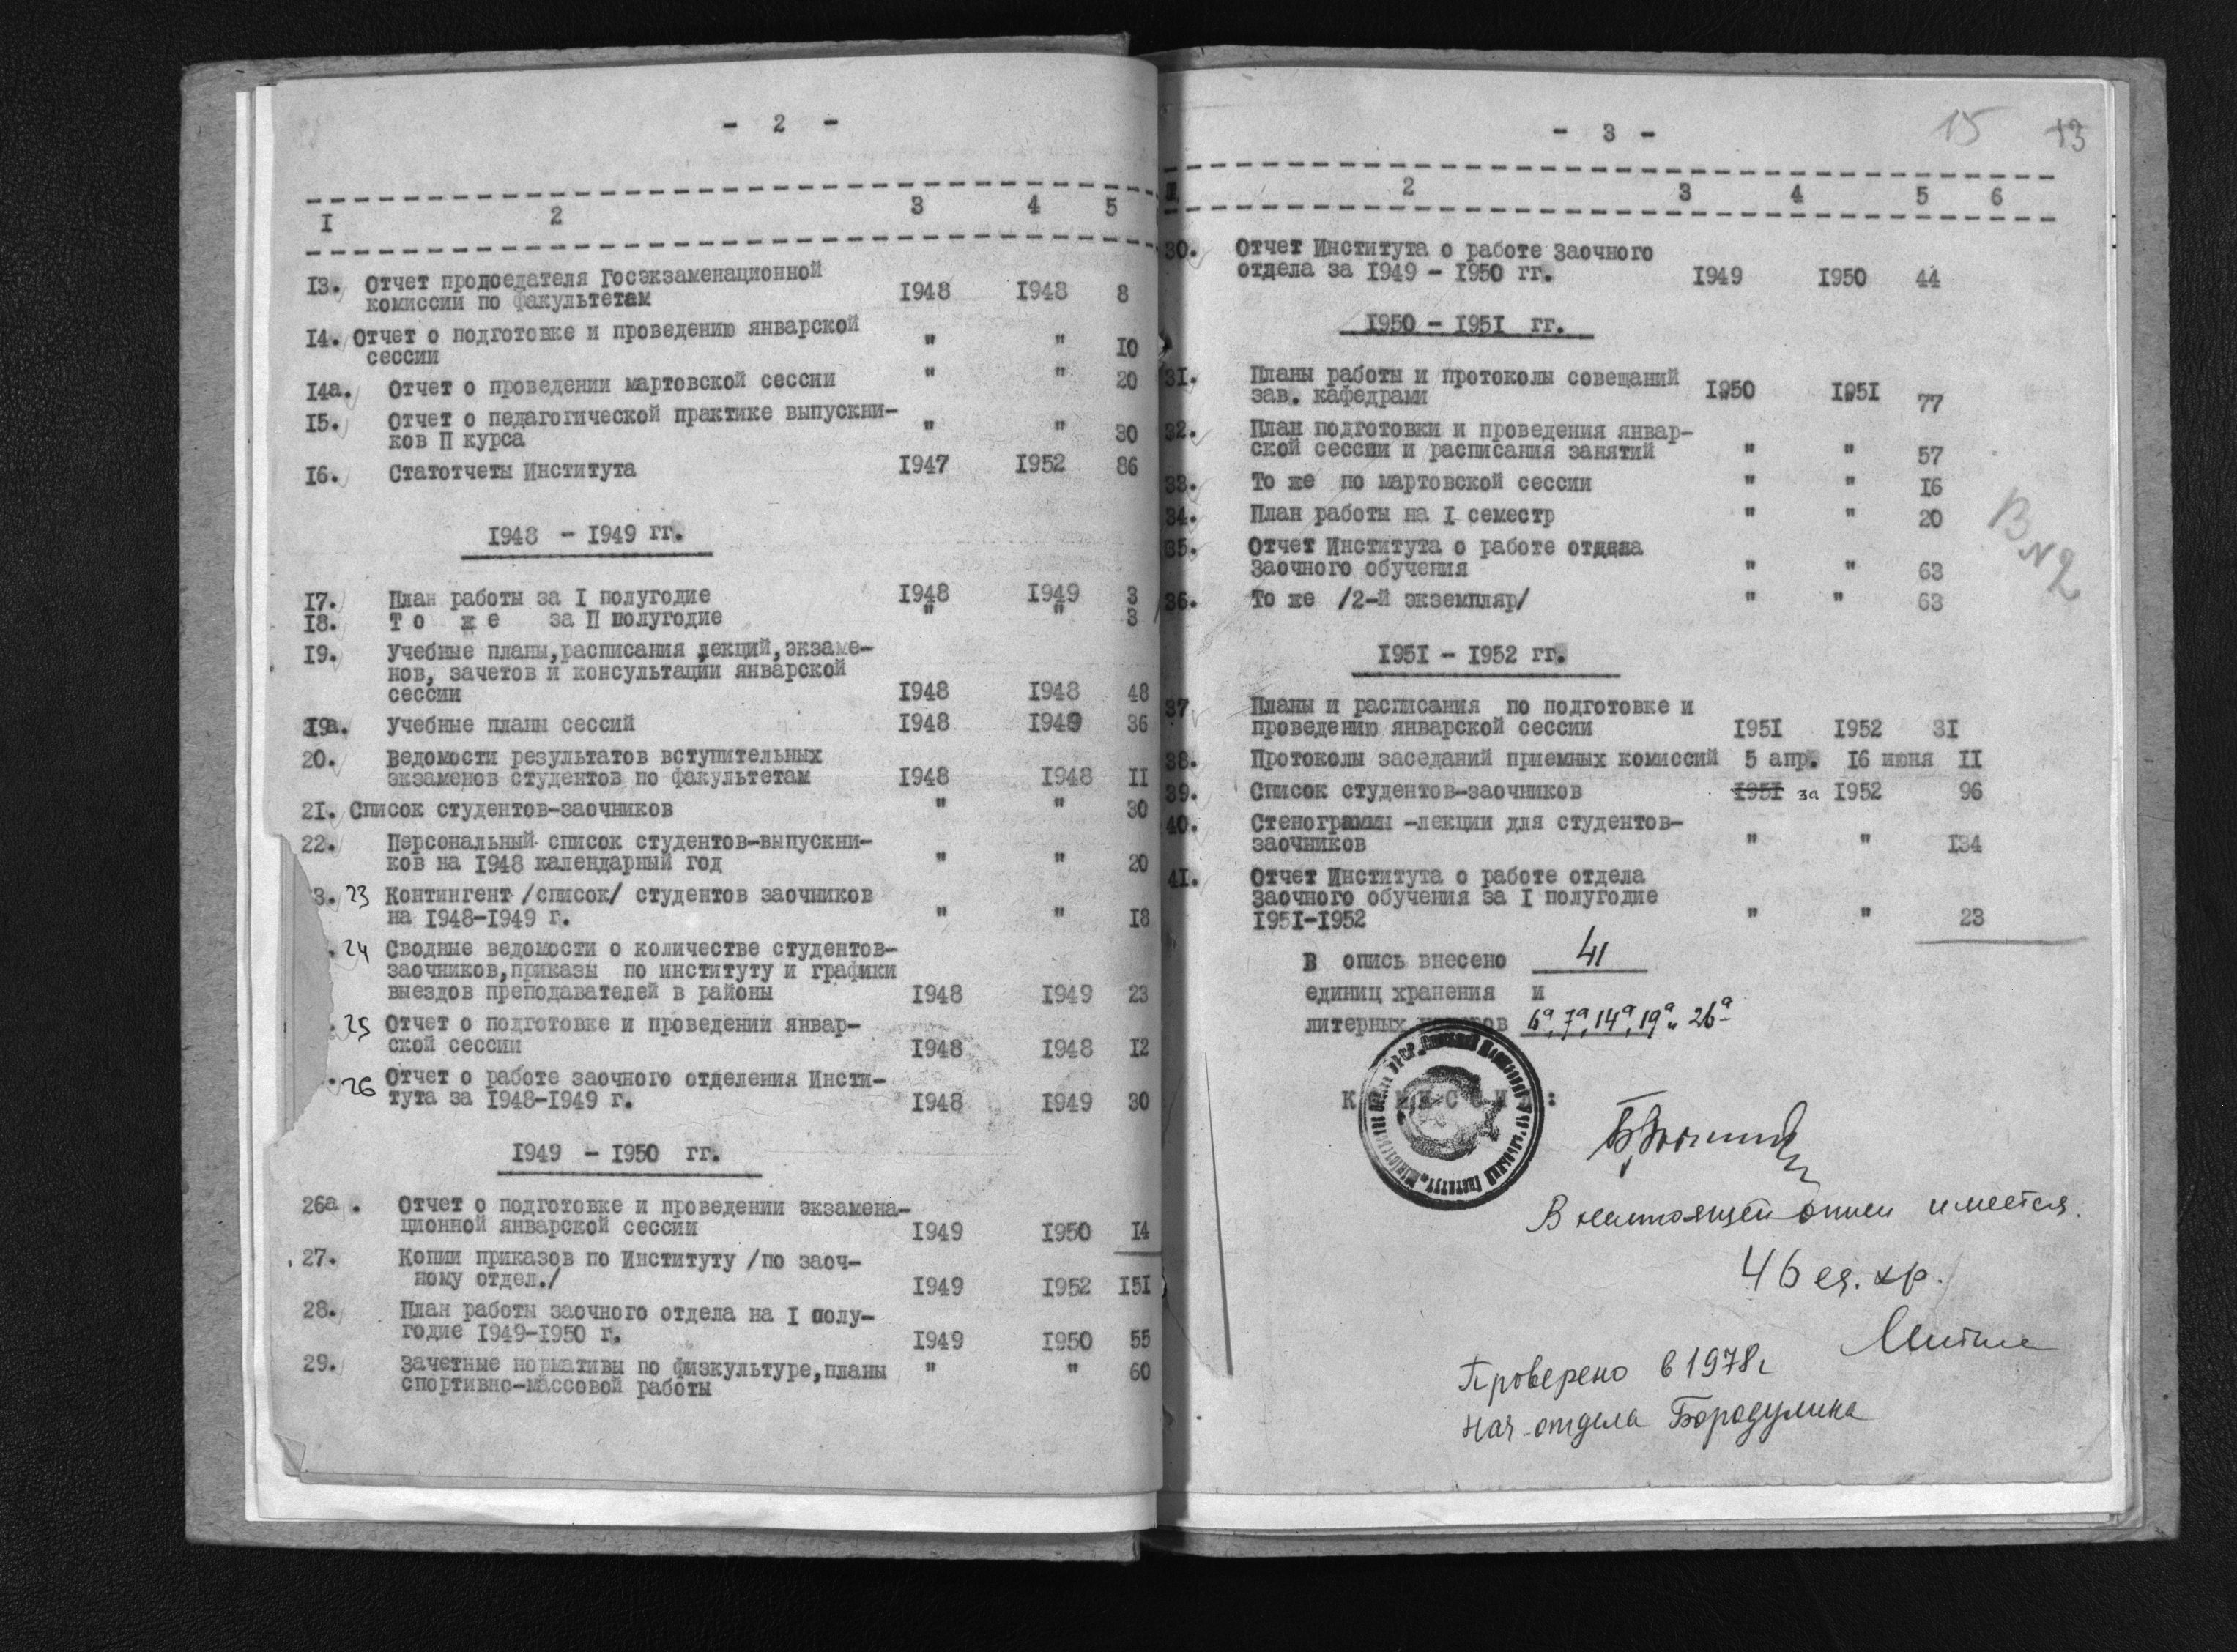 - 2 -
I 2 3 4 5
13. Отчет председателя Госэкзаменационной
комиссии по факультетам 1948 1948 8
14. Отчет о подготовке и проведению январской
сессии " " 10
14а. Отчет о проведении мартовской сессии " " 20
15. Отчет о педагогической практике выпускни-
ков П курса " " 30
16. Статотчеты Института 1947 1952 86
1948 - 1949 гг.
17. План работы за I полугодие 1948 1949 3
18. Т о ж е за П полугодие " " 3
19. Учебные планы, расписания лекций, экзаме-
нов, зачетов и консультации январской
сессии 1948 1948 48
19а. Учебные планы сессий 1948 1949 36
20. Ведомости результатов вступительных
экзаменов студентов по факультетам 1948 1948 II
21. Список студентов-заочников " " 30
22. Персональный список студентов-выпускни-
ков на 1948 календарный год " " 20
3. 23 Контингент /список/ студентов заочников
на 1948-1949 г. " " 18
. 24 Сводные ведомости о количестве студентов-
заочников, приказы по институту и графики
выездов преподавателей в районы 1948 1949 23
. 25 Отчет о подготовке и проведении январ-
ской сессии 1948 1948 12
. 26 Отчет о работе заочного отделения Инсти-
тута за 1948-1949 г. 1948 1949 30
1949 - 1950 гг.
26а. Отчет о подготовке и проведении экзамена-
ционной январской сессии 1949 1950 14
27. Копии приказов по Институту /по заоч-
ному отдел./ 1949 1952 151
28. План работы заочного отдела на I полу-
годие 1949-1950 г. 1949 1950 55
29. Зачетные нормативы по физкультуре, планы " " 60
спортивно-массовой работы
- 3 - 15 13
2 3 4 5 6
30. Отчет Института о работе Заочного
отдела за 1949 - 1950 гг. 1949 1950 44
1950 - 1951 гг.
31. Планы работы и протоколы совещаний
зав. кафедрами 1950 1951 77
32. План подготовки и проведения январ-
ской сессии и расписания занятий " " 57
33. То же по мартовской сессии " " 16
34. План работы на I семестр " " 20
35. Отчет Института о работе отдела
Заочного обучения " " 63
36. То же /2-й экземпляр/ " " 63
1951 - 1952 гг.
37 Планы и расписания по подготовке и
проведению январской сессии 1951 1952 31
38. Протоколы заседаний приемных комиссий 5 апр. 16 июня II
39. Список студентов-заочников 1951 за 1952 96
40. Стенограммы -лекции для студентов-
заочников " " 134
41. Отчет Института о работе отдела
Заочного обучения за I полугодие
1951-1952 " " 23
В опись внесено 41
единиц хранения и
литерных номеров 6а, 7а, 14а, 19а и 26а
В настоящей описи имеется
46 ед. хр.
Проверено в 1978г
Нач. отдела Бородулина